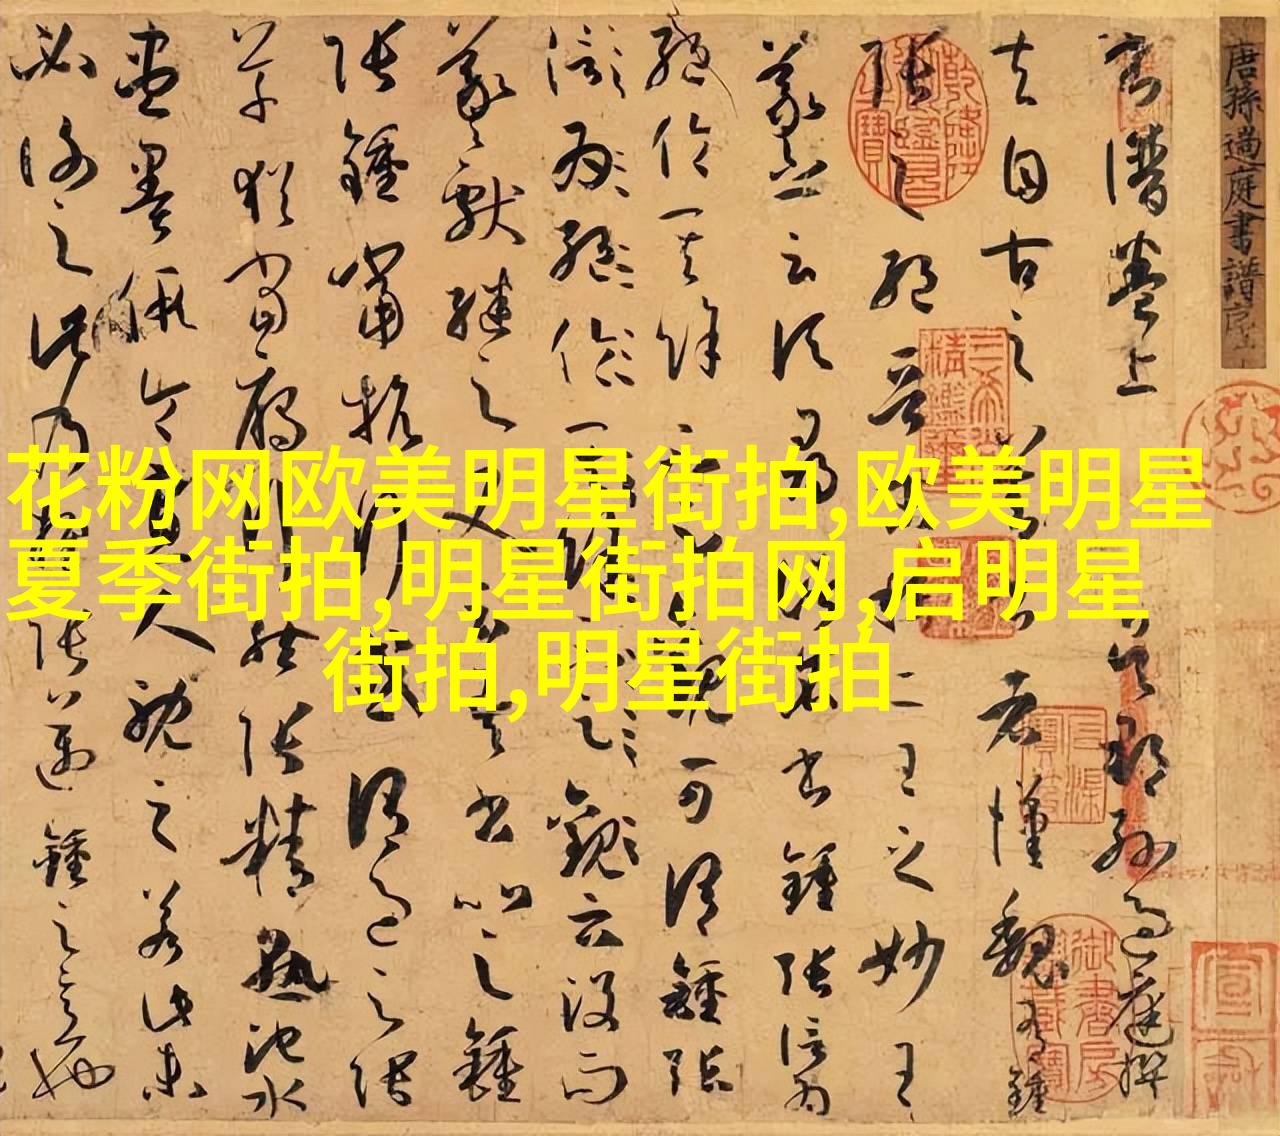 唐孫過庭書譜序上
書譜卷上 吳郡孫過庭撰
夫自古之善書者漢魏有鍾
張之絕晉末稱二王之妙王
羲之云頃尋諸名書鍾張信為
絕倫其餘不足觀可謂鍾張
云沒而
羲獻繼之又云吾書比之鍾
張鍾當抗行或謂過之張
草猶當雁行然張精熟池水
盡墨假令寡人耽之若此未
必謝之此乃推張邁鍾之意也
花粉网欧美明星街拍,欧美明星
夏季街拍,明星街拍网,启明星
街拍,明星街拍